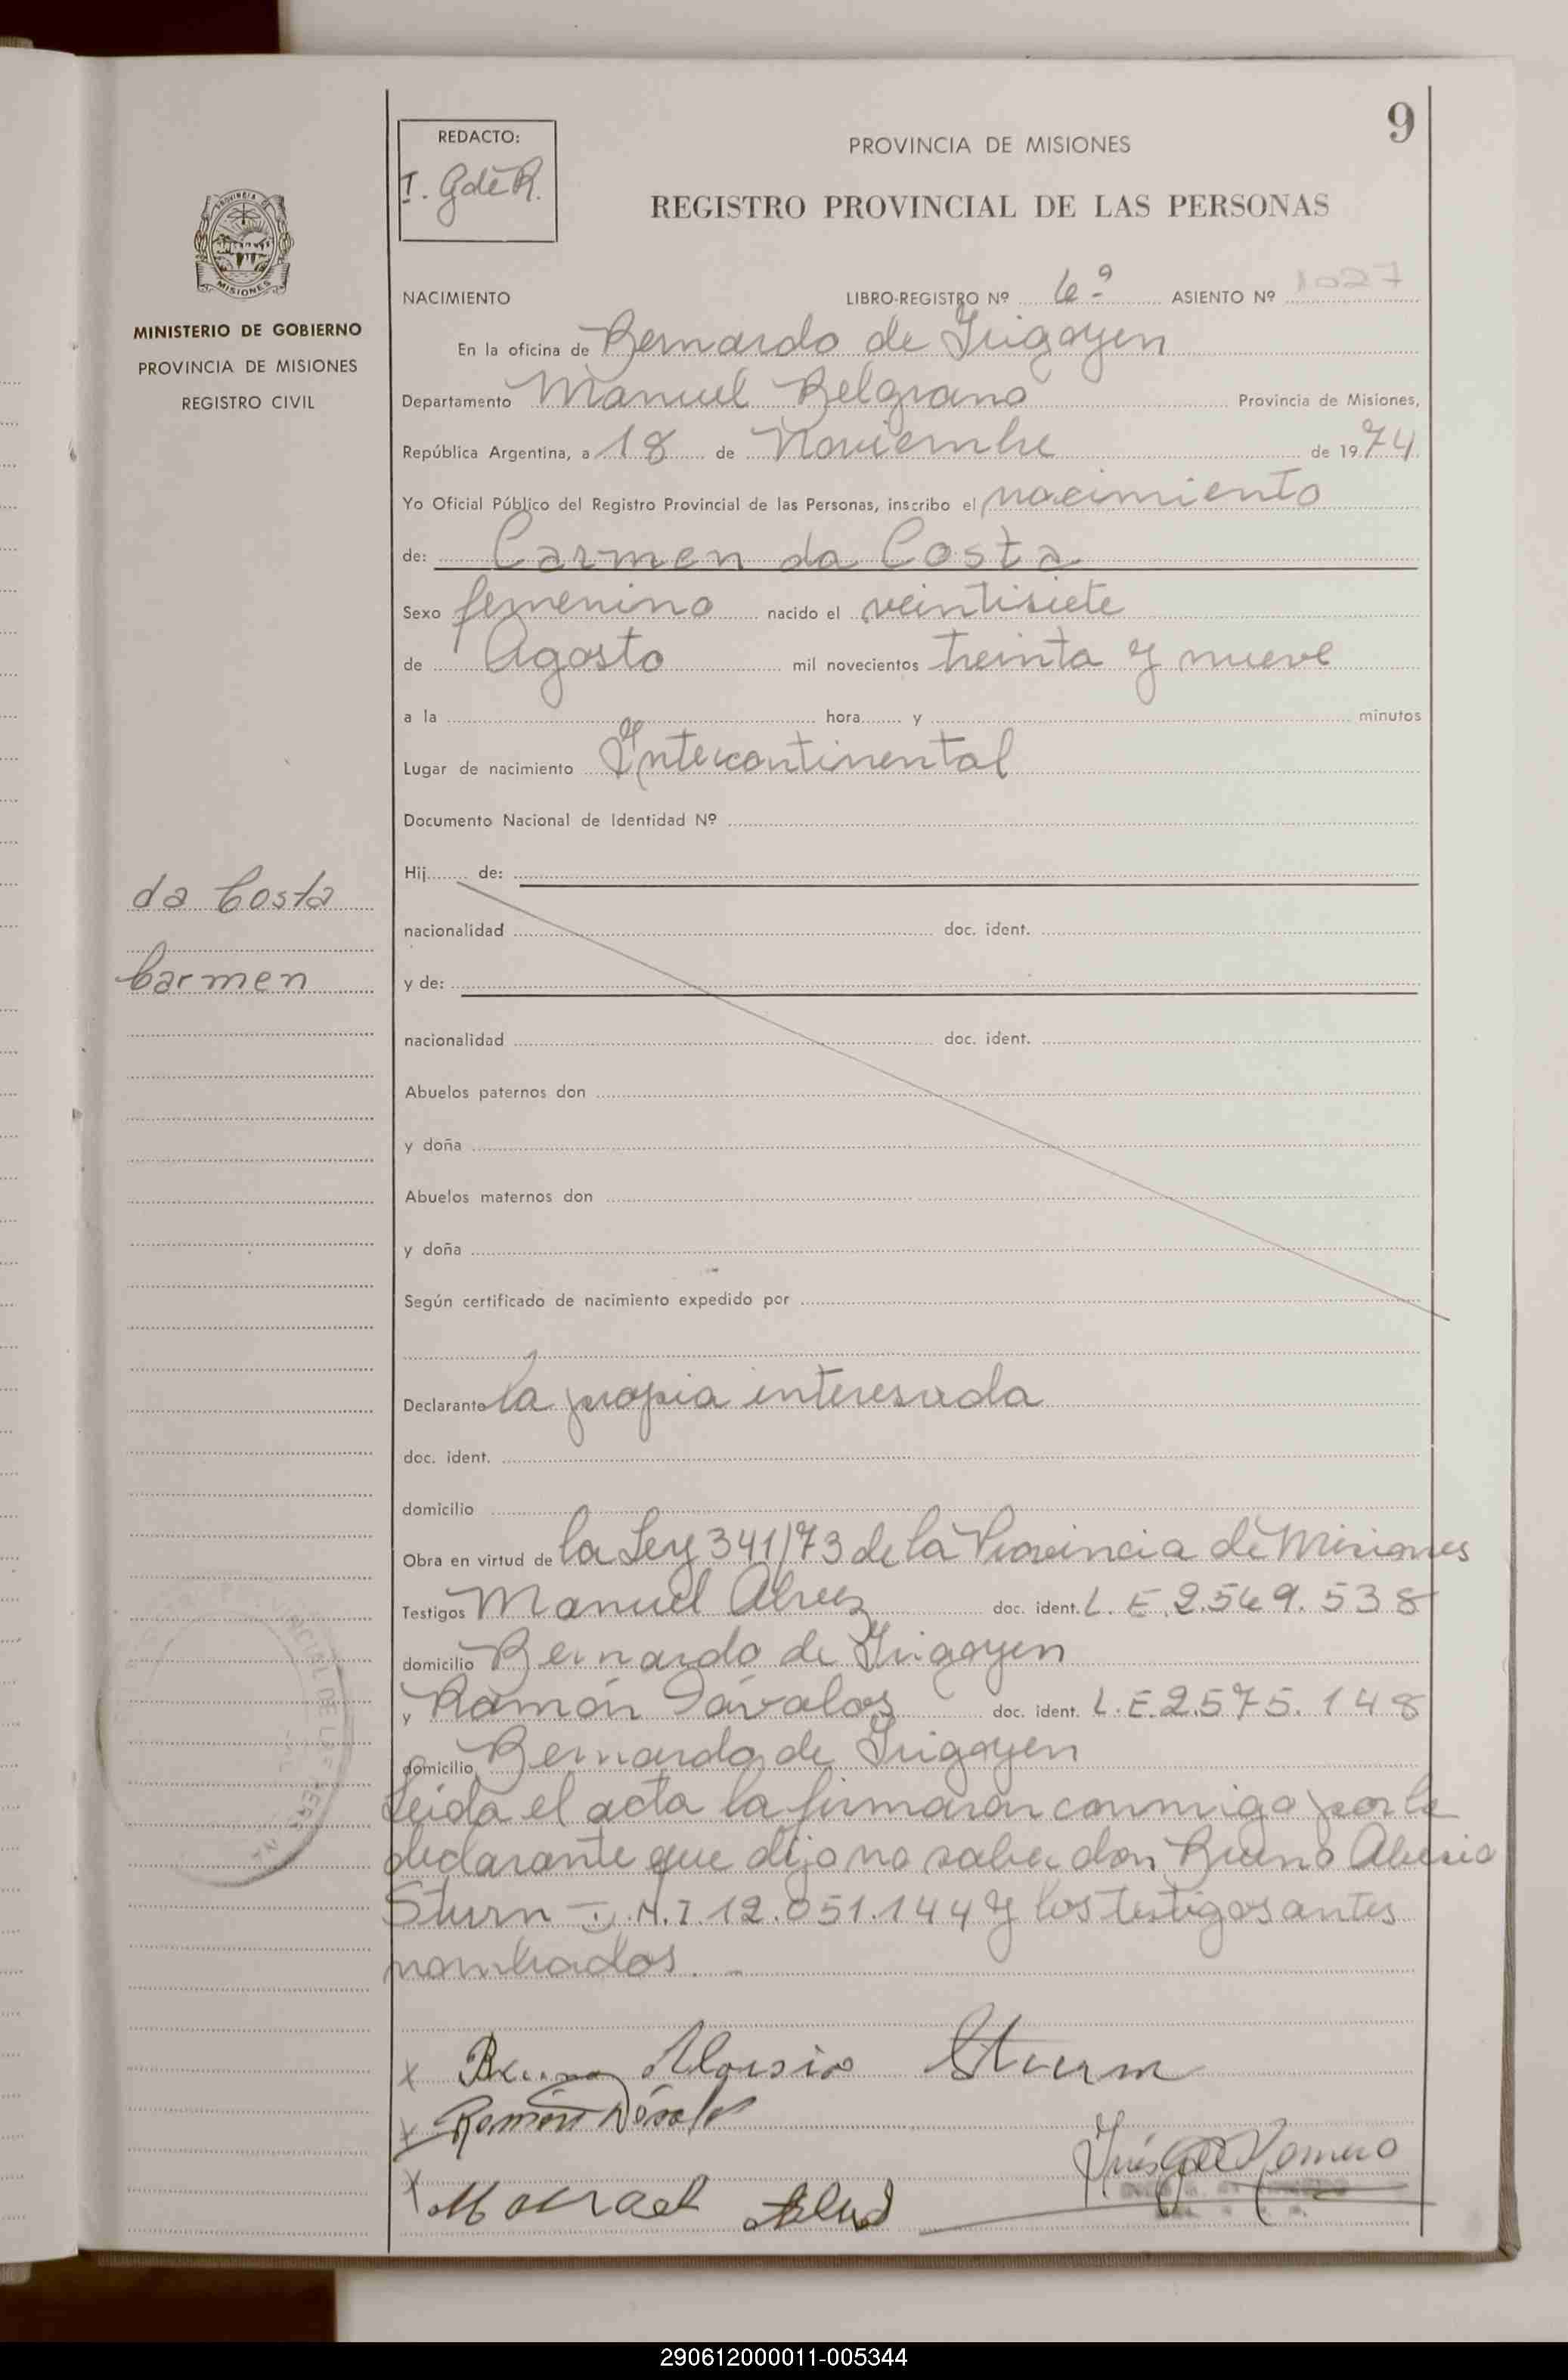 9
REDACTO:
I. G de R.
PROVINCIA DE MISIONES
REGISTRO PROVINCIAL DE LAS PERSONAS
MISIONES
MINISTERIO DE GOBIERNO
PROVINCIA DE MISIONES
REGISTRO CIVIL
NACIMIENTO LIBRO-REGISTRO Nº 6º ASIENTO Nº 1027
En la oficina de Bernardo de Irigoyen
Departamento Manuel Belgrano Provincia de Misiones,
República Argentina, a 18 de Noviembre de 1974
Yo Oficial Público del Registro Provincial de las Personas, inscribo el nacimiento
de: Carmen da Costa
Sexo femenino nacido el veintisiete
de Agosto mil novecientos treinta y nueve
a la hora y minutos
Lugar de nacimiento Intercontinental
Documento Nacional de Identidad Nº
da Costa
Carmen
Hij de:
nacionalidad doc. ident.
y de:
nacionalidad doc. ident.
Abuelos paternos don
y doña
Abuelos maternos don
y doña
Según certificado de nacimiento expedido por
Declarante la propia interesada
doc. ident.
domicilio
Obra en virtud de la Ley 341/73 de la Provincia de Misiones
Testigos Manuel Alvez doc. ident. L. E. 2.569.538
domicilio Bernardo de Irigoyen
y Ramón Dávalos doc. ident. L.E. 2.575.148
domicilio Bernardo de Irigoyen
Leida el acta la firmaron conmigo por la
declarante que dijo no saber don Bruno Alusio
Sturn D.N.I 12.051.144 y los testigos antes
nombrados. -
x Bruno Aloisio Sturm
x Ramón
x
Inés G de Romero
290612000011-005344